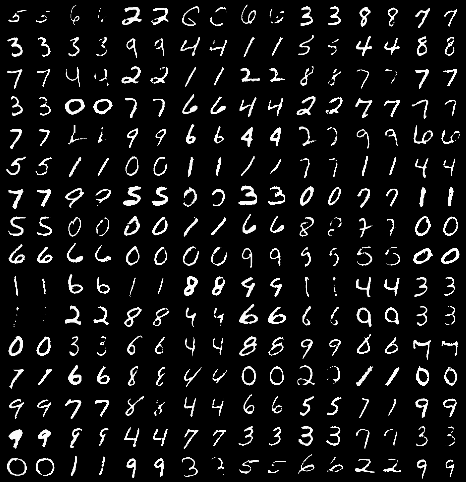 5 5 6 2 2 6 6 6 3 3 8 8 7 7
3 3 3 3 9 9 4 4 1 1 5 5 4 4 8 8
7 7 4 2 2 1 1 2 2 8 8 7 7 7
3 3 0 0 7 7 6 6 4 4 2 2 7 7 7 7
7 7 1 9 9 6 6 4 4 2 9 9 6 6
5 5 1 1 0 0 1 1 1 1 7 7 1 1 4 4
7 7 9 9 5 5 0 3 3 0 0 7 7 1 1
5 5 0 0 0 0 1 1 6 6 8 8 7 7 0 0
6 6 6 6 0 0 0 0 9 9 9 5 5 5 0 0
1 1 6 6 1 1 8 8 9 9 1 1 4 4 3 3
2 2 8 8 4 4 6 6 6 6 9 9 3 3
0 0 3 3 6 6 4 4 8 8 9 9 6 6 7 7
7 1 6 6 8 8 4 4 0 0 2 1 1 0 0
9 9 7 7 8 8 4 4 6 6 5 5 7 1 9 9
9 9 9 9 4 4 7 7 3 3 3 3 9 9 3 3
0 0 1 1 9 9 3 5 5 6 6 2 2 9 9